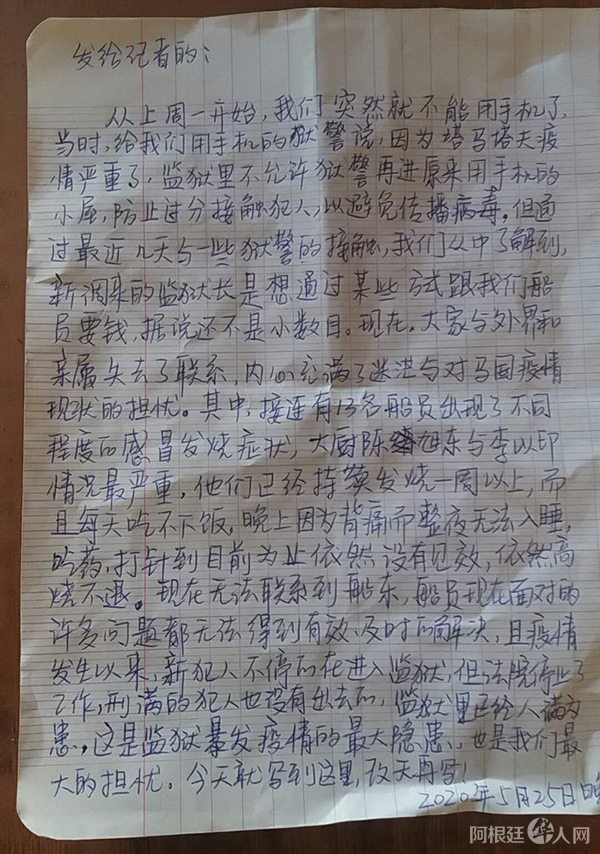 发给记者的：
从上周一开始，我们突然就不能用手机了，
当时，给我们用手机的狱警说，因为塔马塔夫疫
情严重了，监狱里不允许狱警再进原来用手机的
小屋，防止过分接触犯人，以避免传播病毒。但通
过最近几天与一些狱警的接触，我们从中了解到，
新调来的监狱长是想通过某些方式跟我们船
员要钱，据说还不是小数目。现在，大家与外界和
亲属失去了联系，内心充满了迷茫与对马国疫情
现状的担忧。其中，接连有13名船员出现了不同
程度的感冒发烧症状，大厨陈旭东与李以印
情况最严重，他们已经持续发烧一周以上，而
且每天吃不下饭，晚上因为背痛而整夜无法入睡，
吃药，打针到目前为止依然没有见效，依然高
烧不退。现在无法联系到船东，船员现在面对的
许多问题都无法得到有效、及时的解决，且疫情
发生以来，新犯人不停的在进入监狱，但法院停止了
工作，刑满的犯人也没有出去的，监狱里已经人满为
患，这是监狱暴发疫情的最大隐患，也是我们最
大的担忧。今天就写到这里，改天再写！
2020年5月25日晚
阿根廷华人网